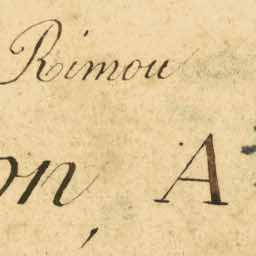 Rimou
on, A